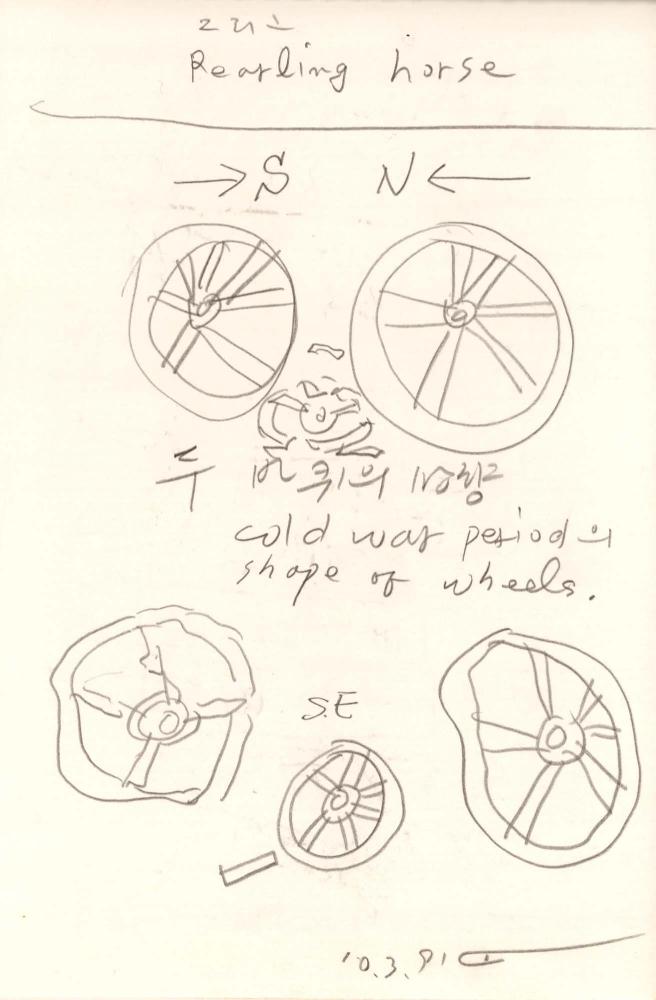 그리스
Rearling horse
→ S N ←
두 바퀴의 방향
cold war period의
shape of wheels.
S.E
'10.3.81